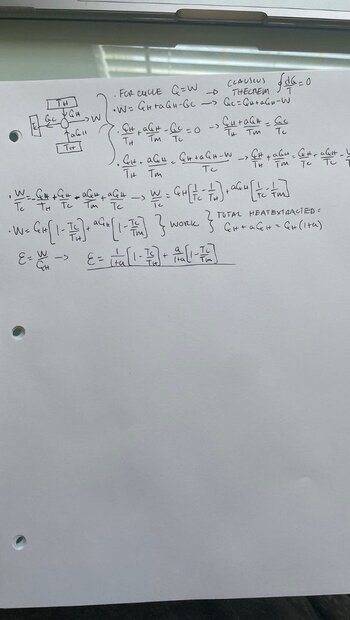 · FOR CYCLE Q = W → CLAUSIUS THEOREM ∮dQ/T = 0
· W = QH + aQH - QC → QC = QH + aQH - W
TH
QC QH
→ W
aQH
TM
· QH/TH + aQH/TM - QC/TC = 0 → QH/TH + aQH/TM = QC/TC
· QH/TH + aQH/TM = (QH + aQH - W)/TC → QH/TH + aQH/TM = QH/TC + aQH/TC -
· W/TC = -QH/TH + QH/TC - aQH/TM + aQH/TC → W/TC = QH[1/TC - 1/TH] + aQH[1/TC - 1/TM]
· W = QH[1 - TC/TH] + aQH[1 - TC/TM] } WORK } TOTAL HEAT EXTRACTED =
QH + aQH = QH(1+a)
ε = W/QH → ε = 1/(1+a)[1 - TC/TH] + a/(1+a)[1 - TC/TM]